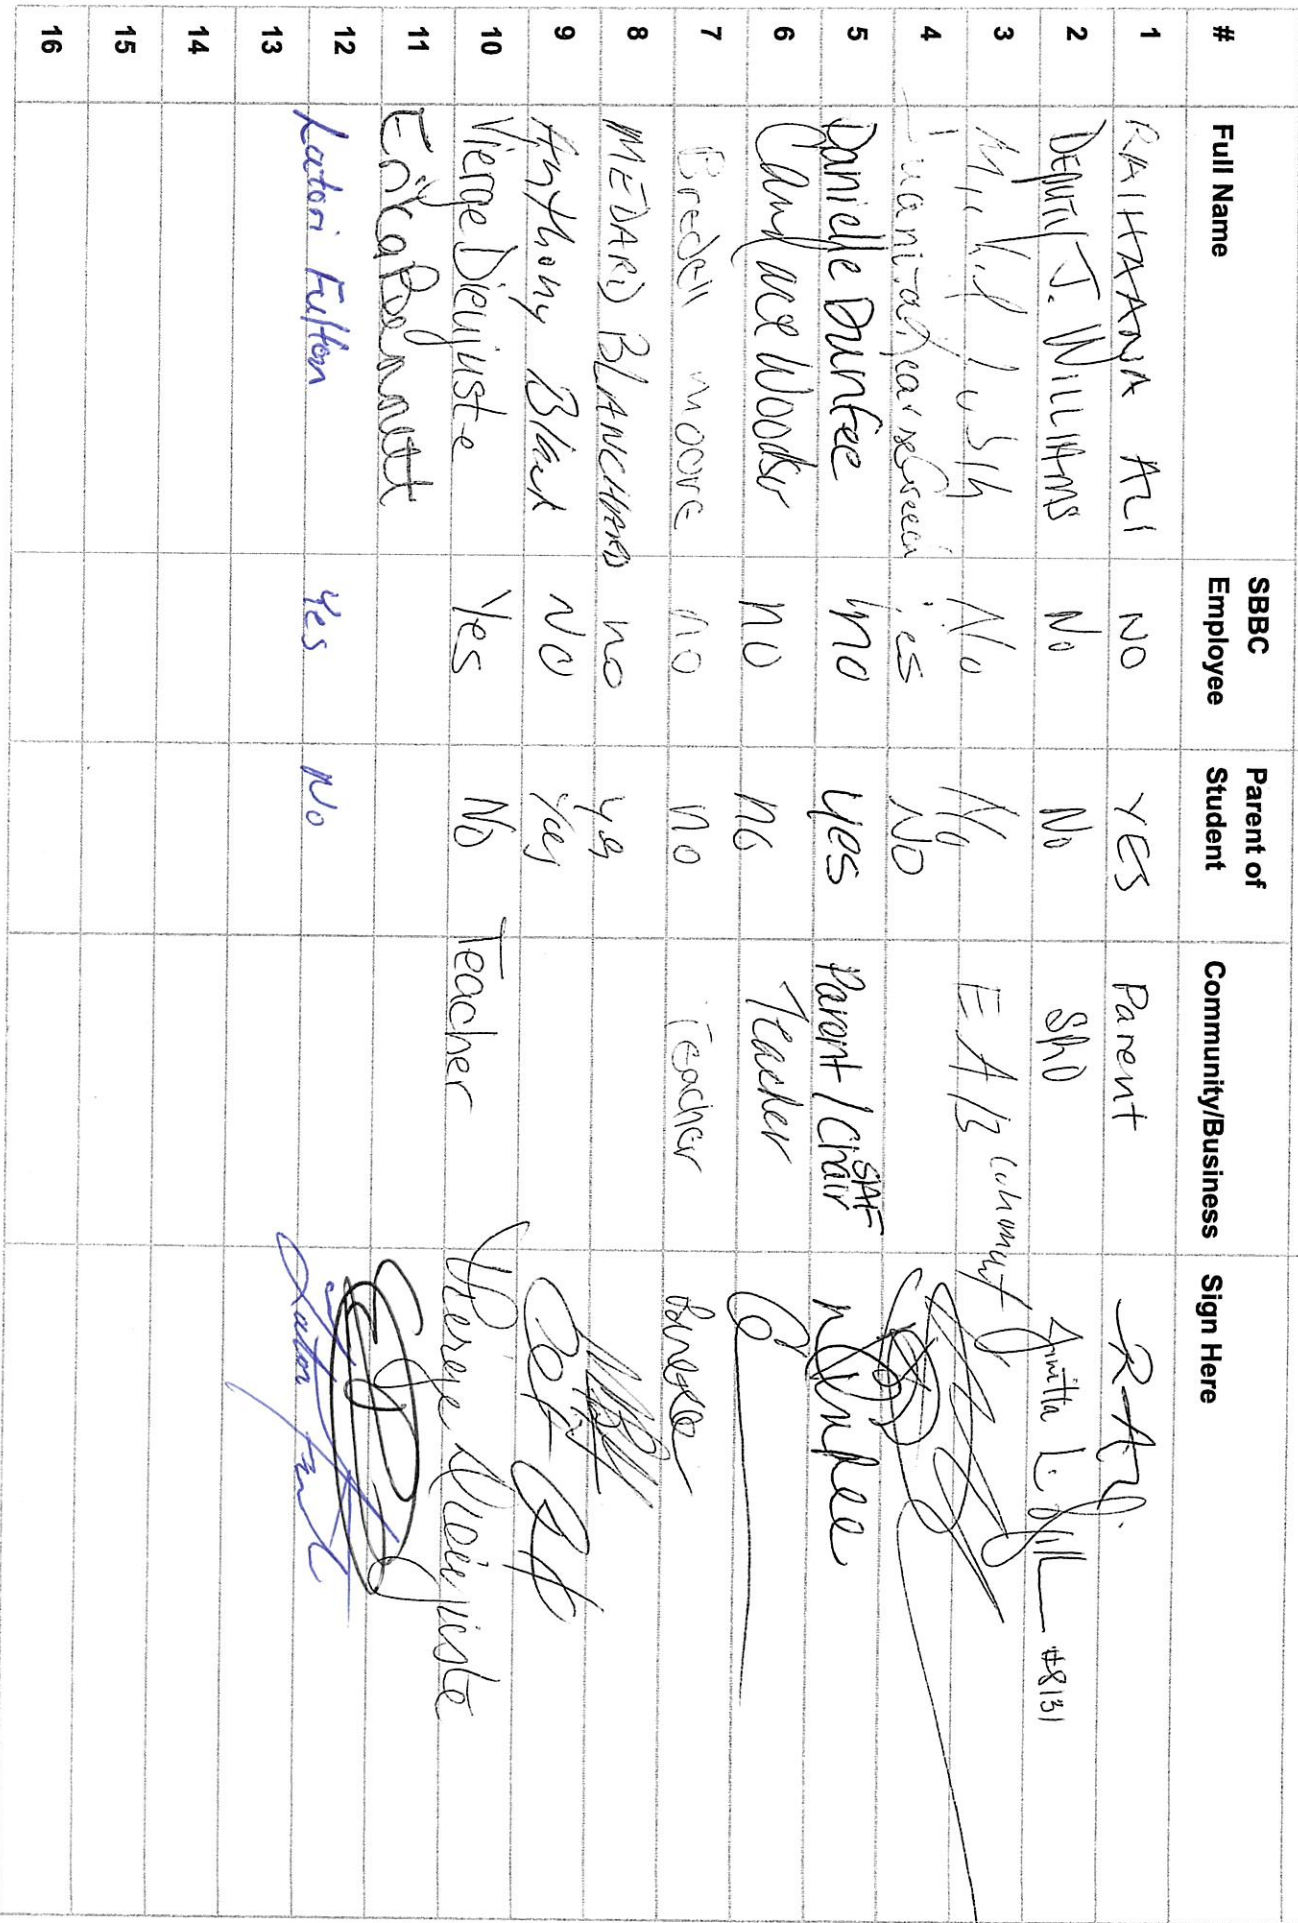 # Full Name SBBC Employee Parent of Student Community/Business Sign Here
1 RAIHAANA ALI NO YES Parent R. Ali
2 DEPUTY J. WILLIAMS No No SRO #8131
3 No No
4 Yes No
5 Danielle Dunfee no yes Parent / SAF Chair NDunfee
6 Candace Woodser no no Teacher
7 Bredell moore no no Teacher
8 MEDARD BLANCHARD no yes
9 Anthony Black NO Yes
10 Vierge Dieujuste Yes No Teacher Vierge Dieujuste
11 Erika Bennett
12 Latori Fulton Yes No
13
14
15
16